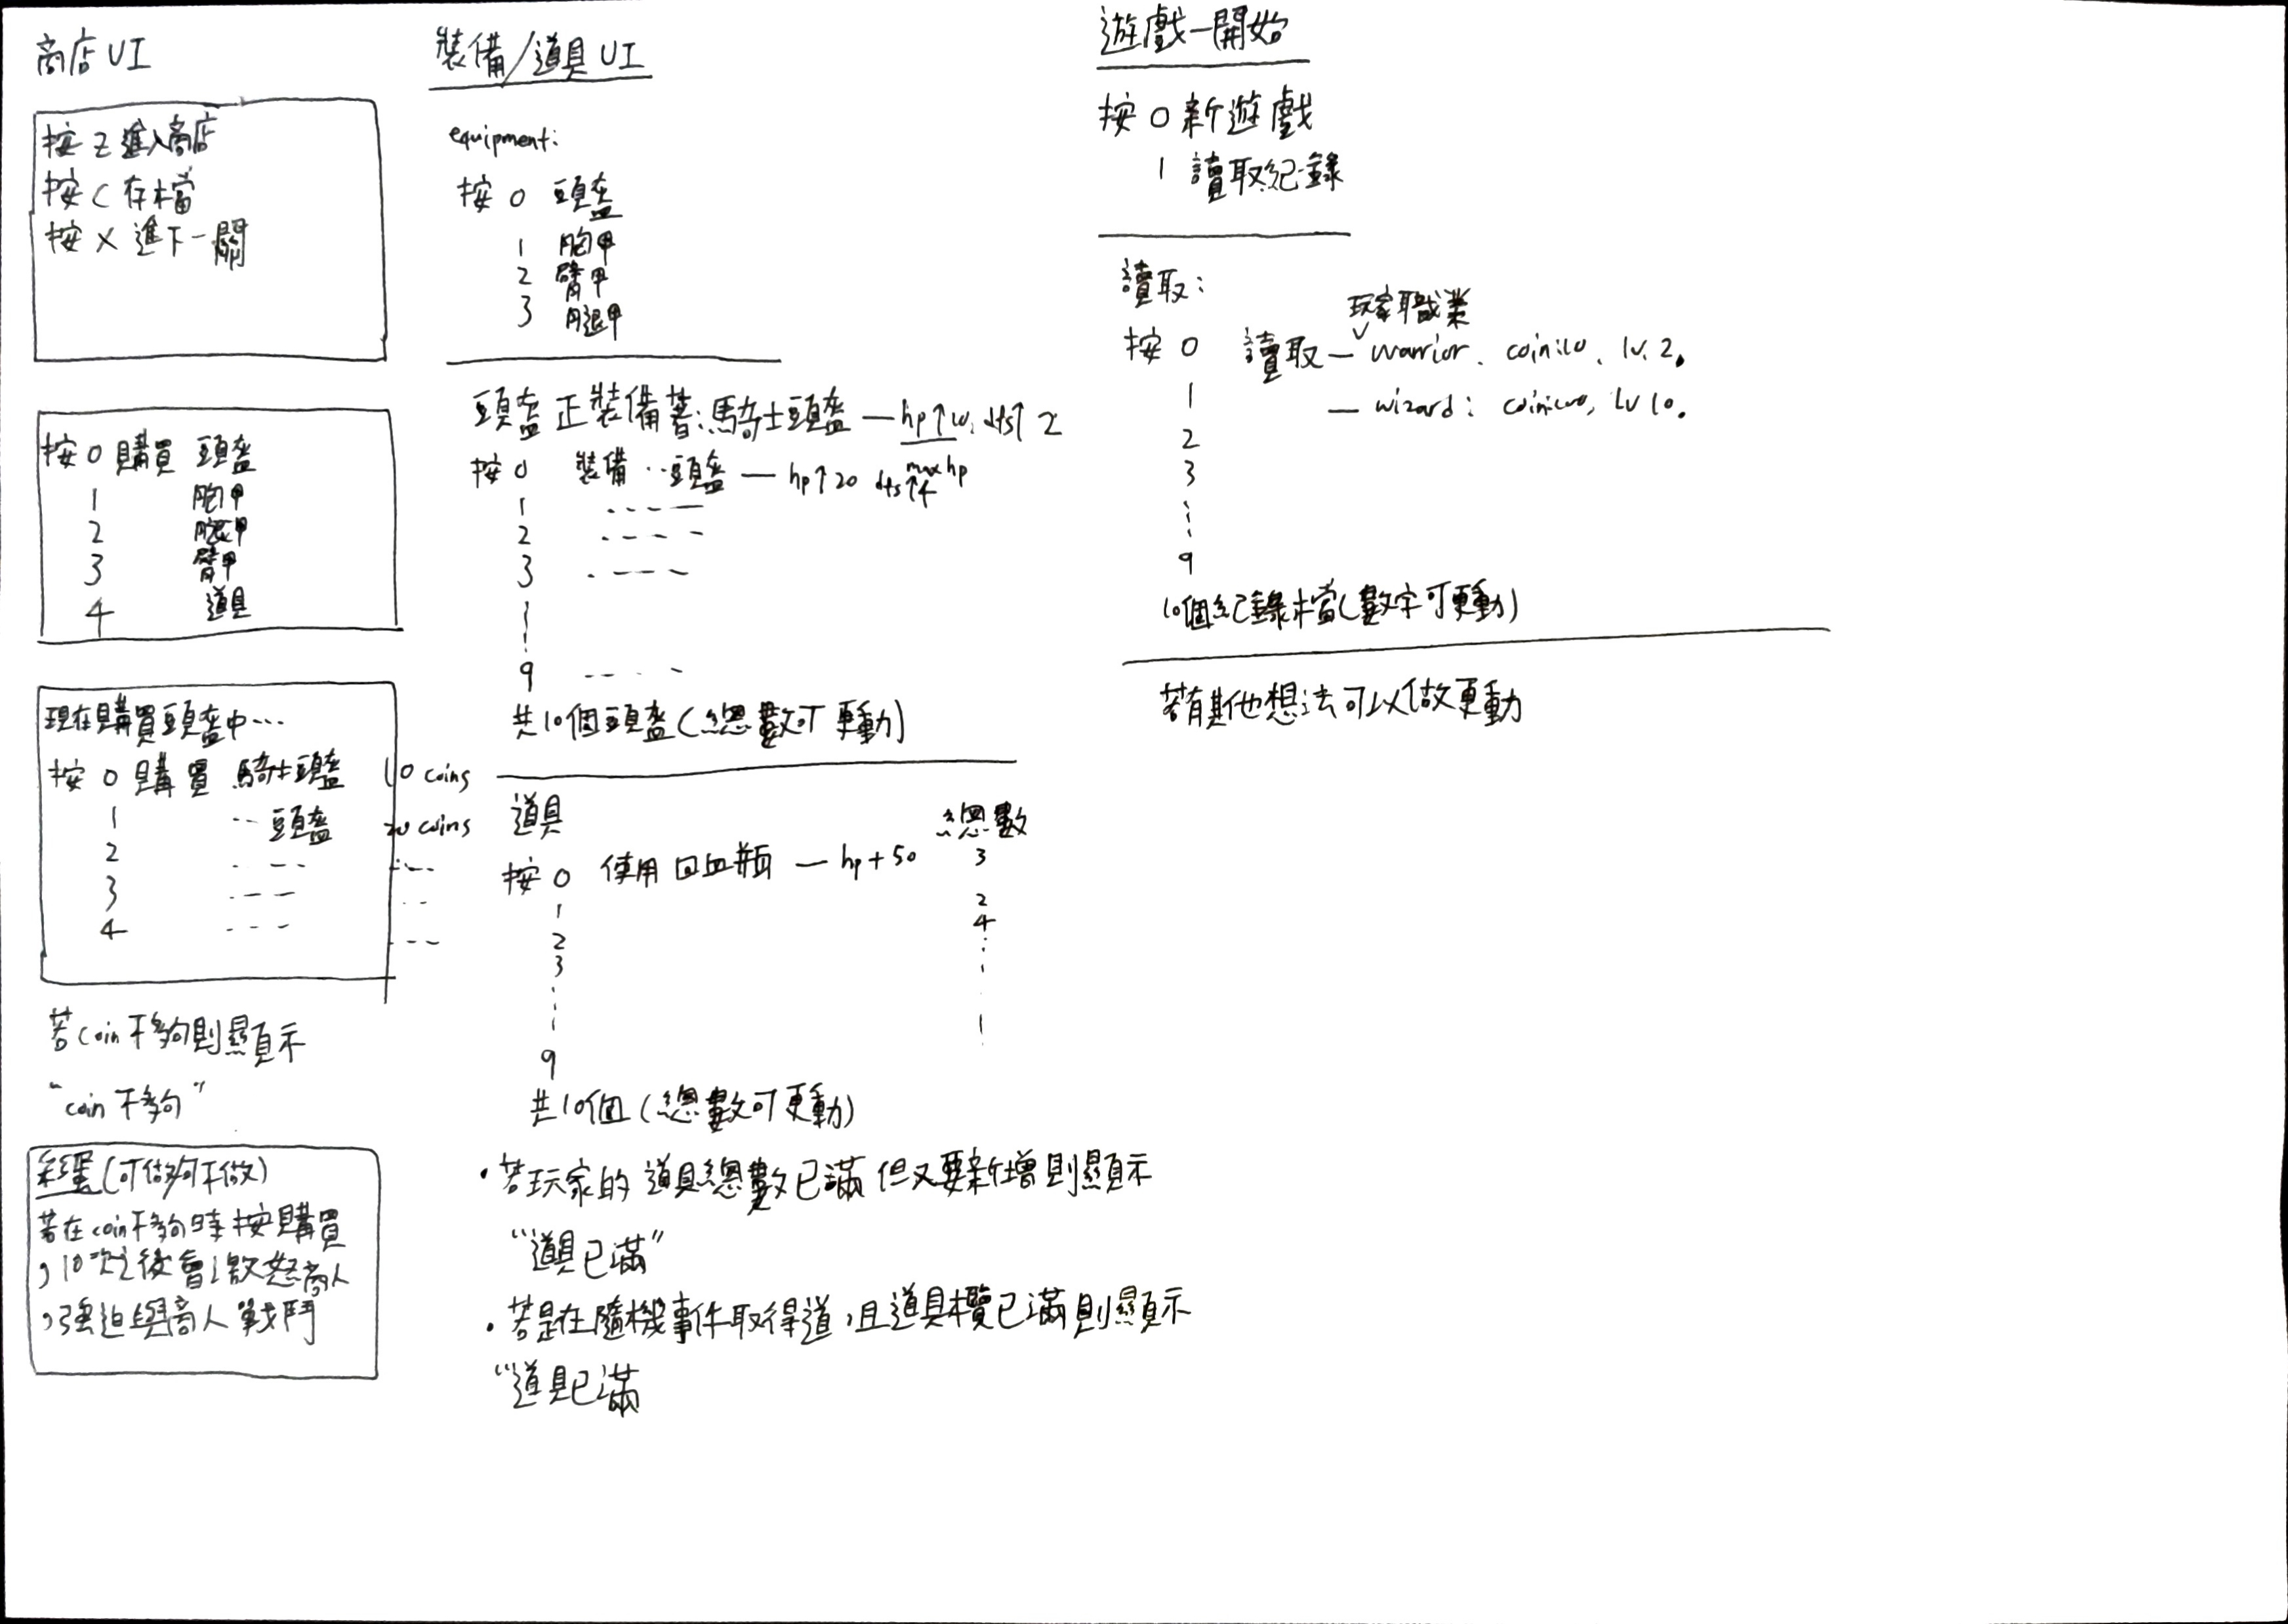 商店 UI
按 Z 進入商店
按 C 存檔
按 X 進下一關
按 0 購買 頭盔
1 胸甲
2 腿甲
3 臂甲
4 道具
現在購買頭盔中...
按 0 購買 騎士頭盔 10 coins
1 -- 頭盔 20 coins
2
3
4
若 coin 不夠則顯示
"coin 不夠"
彩蛋(可做可不做)
若在coin不夠時按購買
,10次之後會激怒商人
,強迫與商人戰鬥
裝備/道具 UI
equipment:
按 0 頭盔
1 胸甲
2 臂甲
3 腿甲
頭盔 正裝備著:騎士頭盔 — hp↑10, dfs↑2
max hp
按 0 裝備 ‥頭盔 — hp↑20 dfs↑4
1 ----
2 ----
3 ----
9 ----
共10個頭盔(總數可更動)
道具 總數
按 0 使用 回血瓶 — hp+50 3
1 2
2 4
3
9
共10個(總數可更動)
·若玩家的道具總數已滿但又要新增則顯示
"道具已滿"
·若是在隨機事件取得道,且道具欄已滿則顯示
"道具已滿
遊戲一開始
按 0 新遊戲
1 讀取紀錄
讀取:
玩家職業
按 0 讀取 — warrior. coin:10. lv.2.
1 — wizard: coin:, lv 10.
2
3
9
10個紀錄檔(數字可更動)
若有其他想法可以做更動